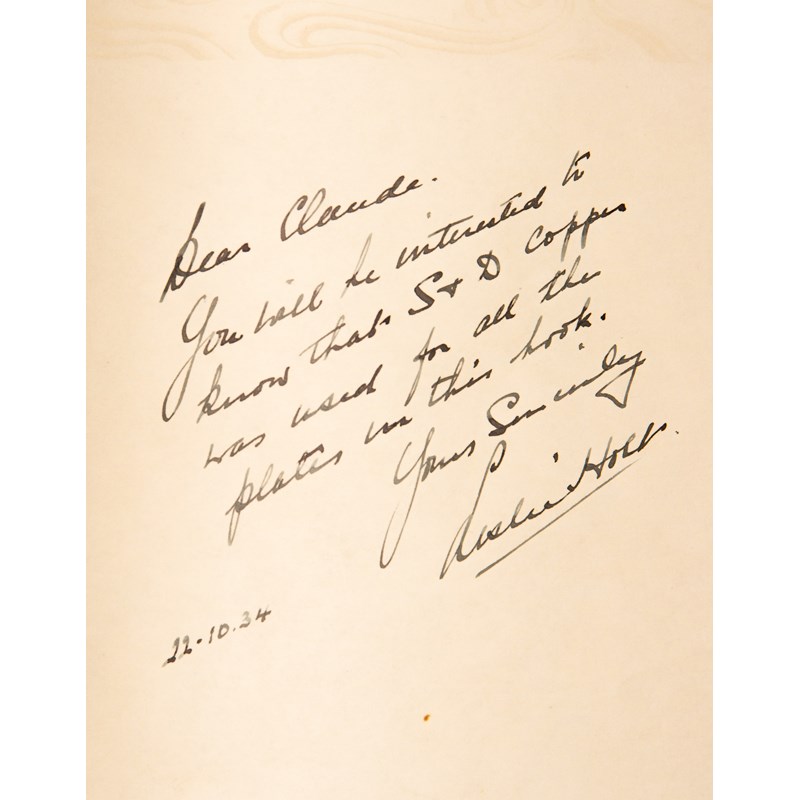 Dear Claude.
You will be interested to
know that S & D copper
was used for all the
plates in this book.
Yours Sincerely
Leslie Holt.
22-10.34